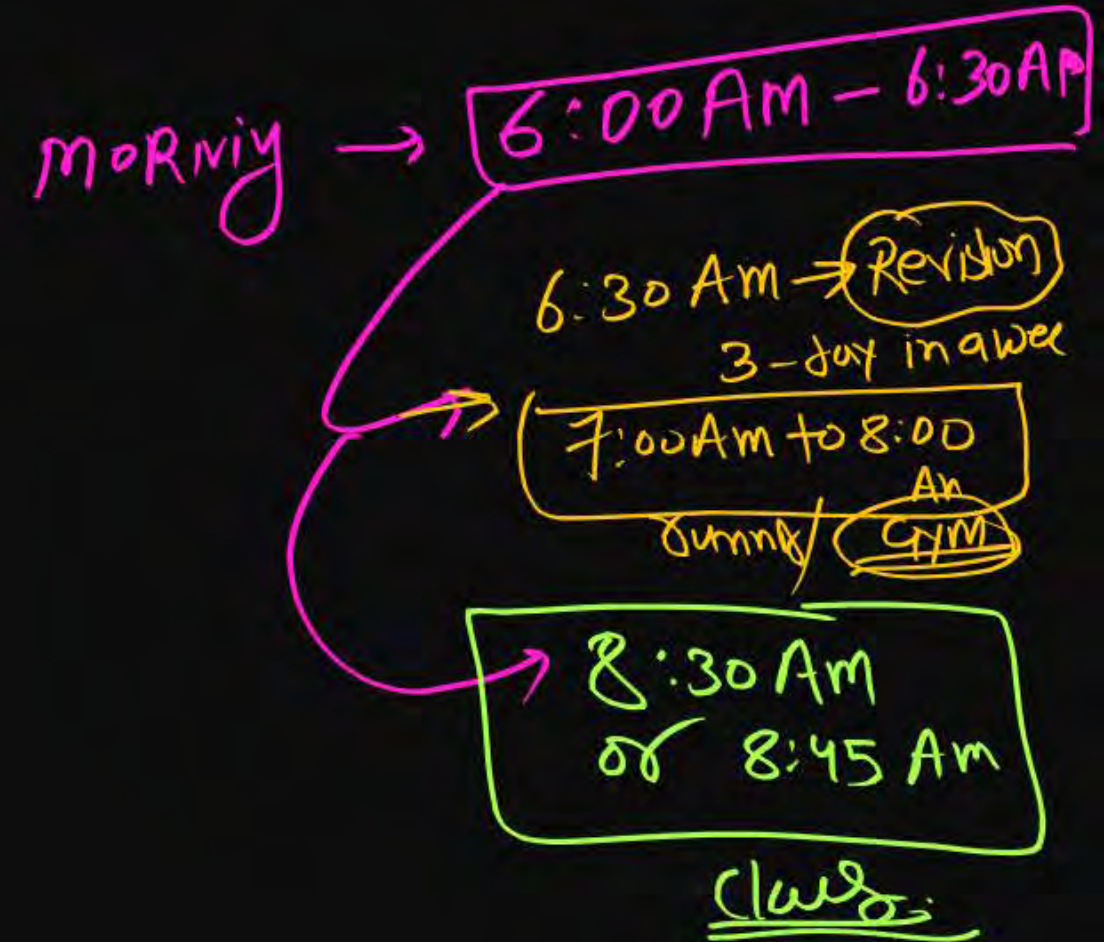 MORNiNg → 6:00 AM – 6:30 AM
6:30 AM → Revision
3-day in a wee
7:00 AM to 8:00
AM
running/ GYM
8:30 AM
or 8:45 AM
Class